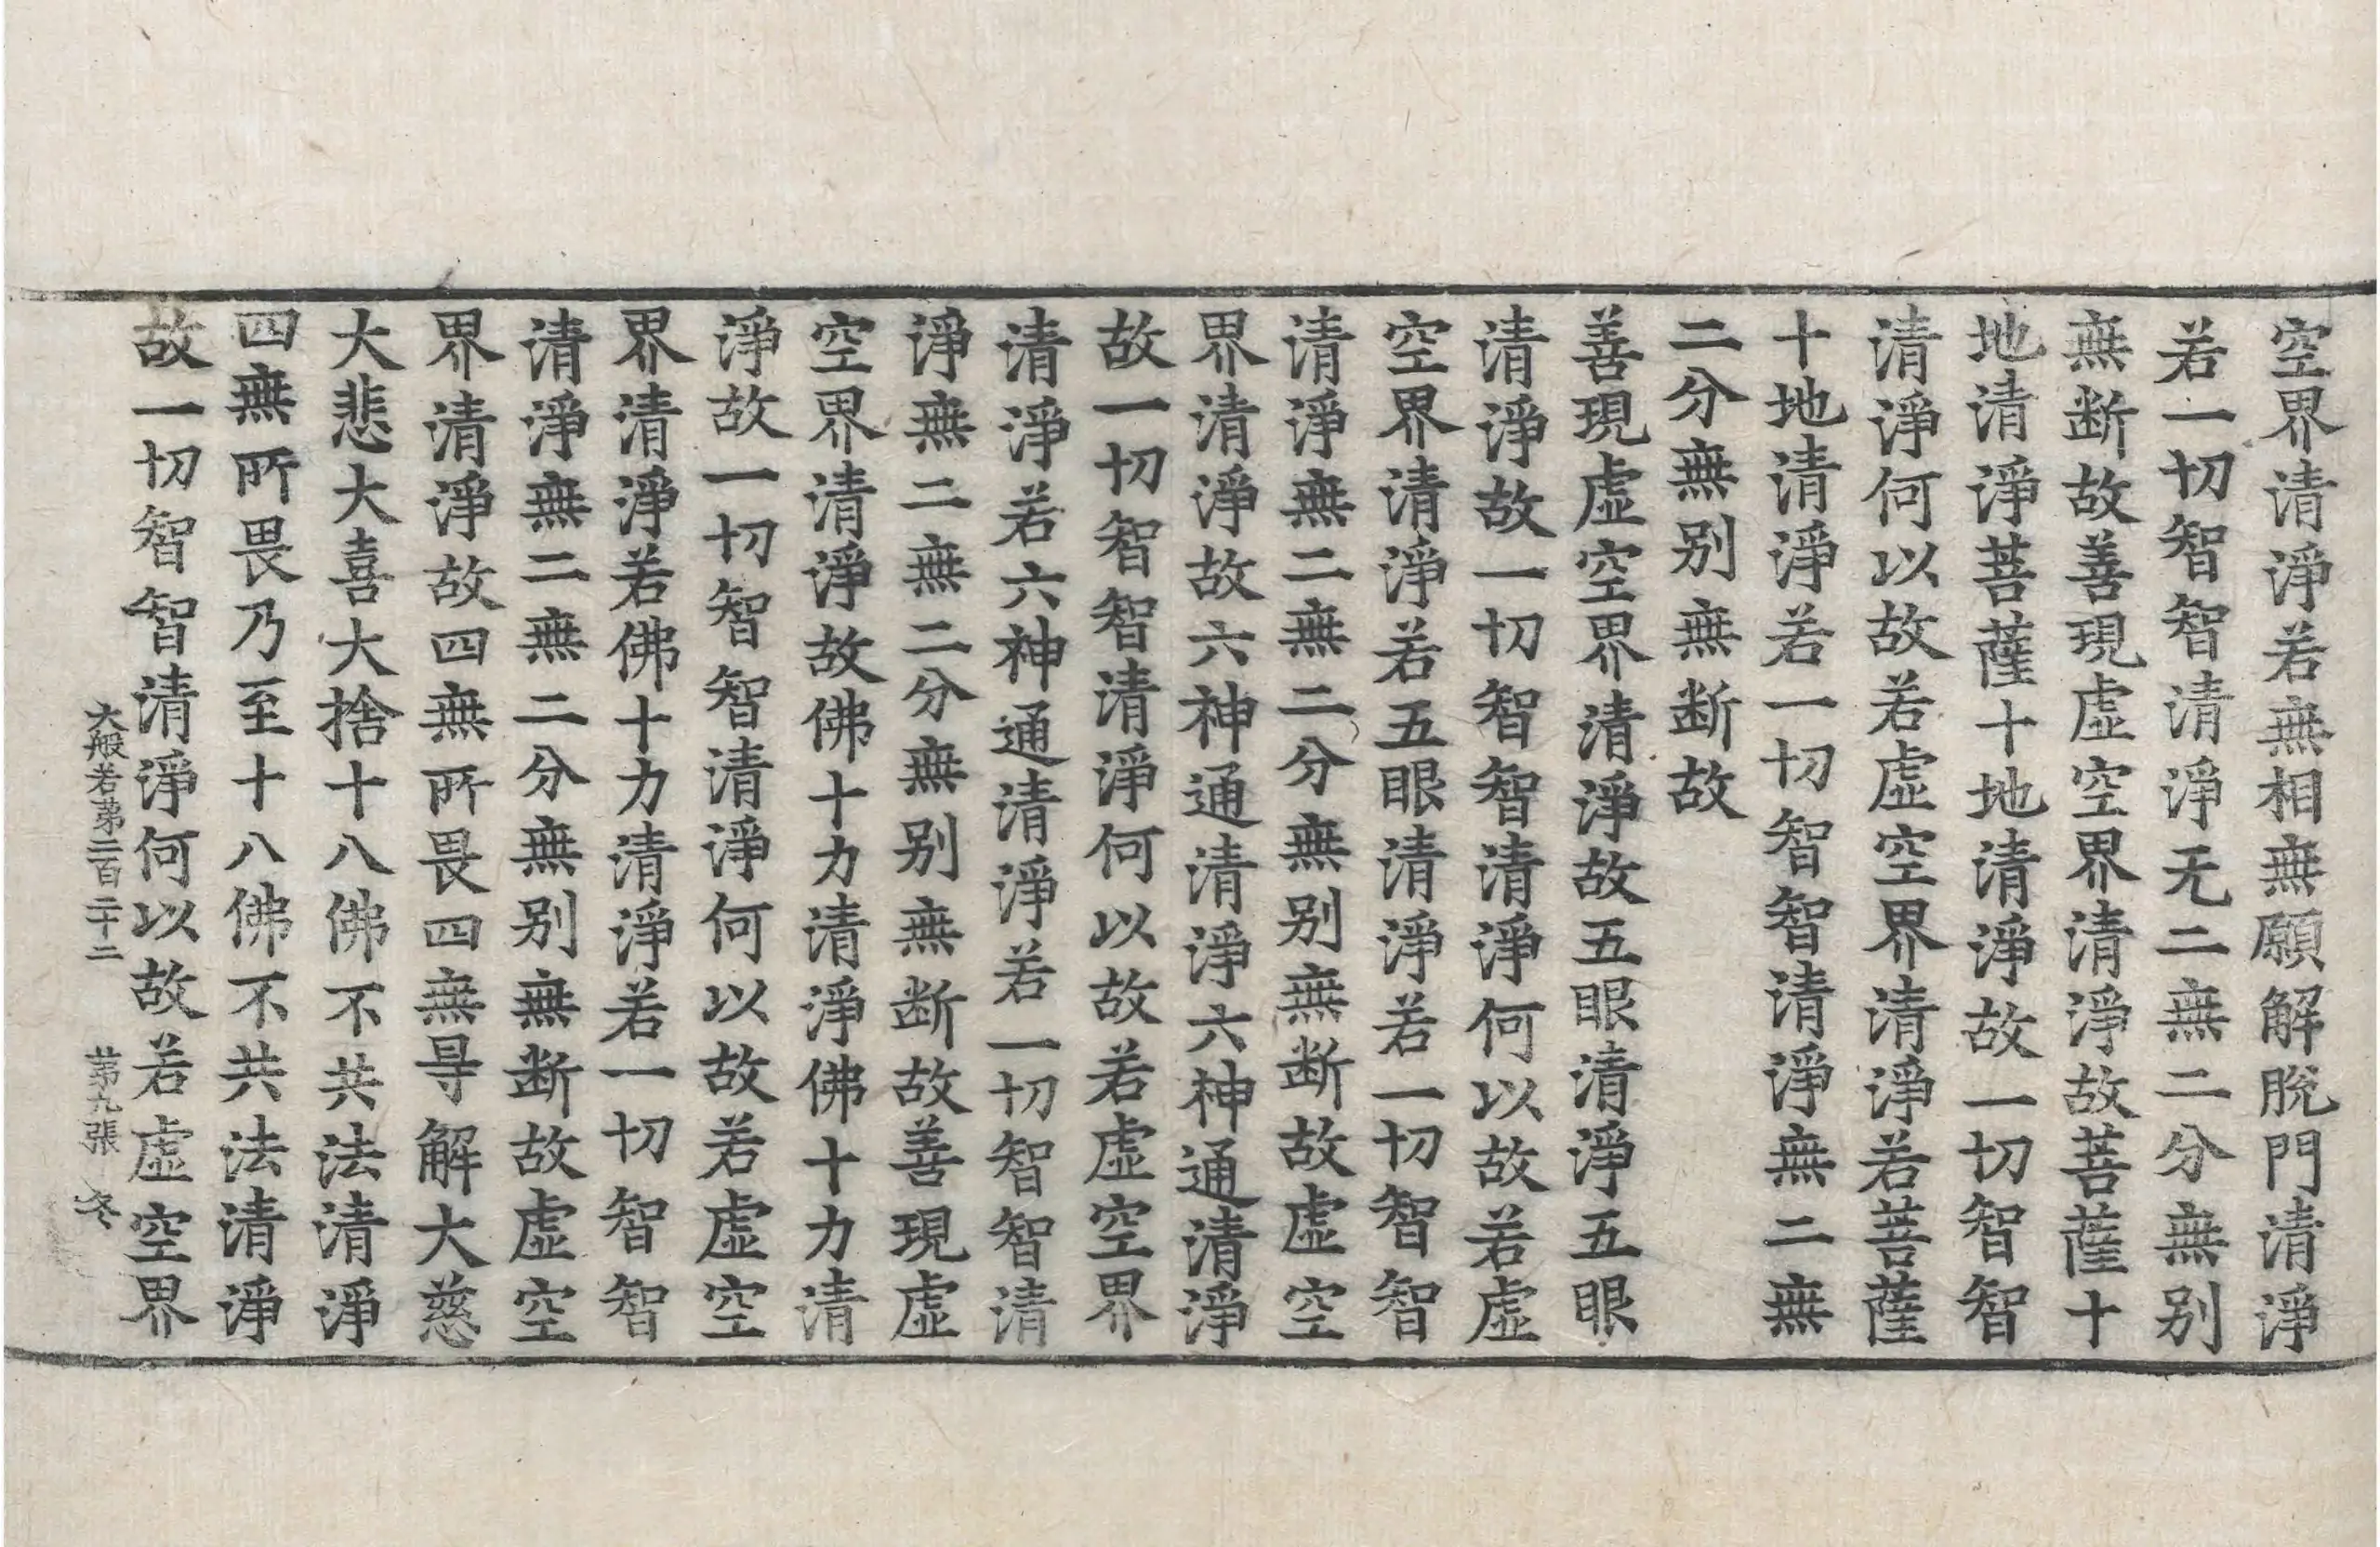 空界清淨若無相無願解脫門清淨
若一切智智清淨无二無二分無別
無断故善現虛空界清淨故菩薩十
地清淨菩薩十地清淨故一切智智
清淨何以故若虛空界清淨若菩薩
十地清淨若一切智智清淨無二無
二分無別無断故
善現虛空界清淨故五眼清淨五眼
清淨故一切智智清淨何以故若虛
空界清淨若五眼清淨若一切智智
清淨無二無二分無別無断故虛空
界清淨故六神通清淨六神通清淨
故一切智智清淨何以故若虛空界
清淨若六神通清淨若一切智智清
淨無二無二分無別無断故善現虛
空界清淨故佛十力清淨佛十力清
淨故一切智智清淨何以故若虛空
界清淨若佛十力清淨若一切智智
清淨無二無二分無別無断故虛空
界清淨故四無所畏四無㝵解大慈
大悲大喜大捨十八佛不共法清淨
四無所畏乃至十八佛不共法清淨
故一切智智清淨何以故若虛空界
大般若第二百二十二 第九張 冬